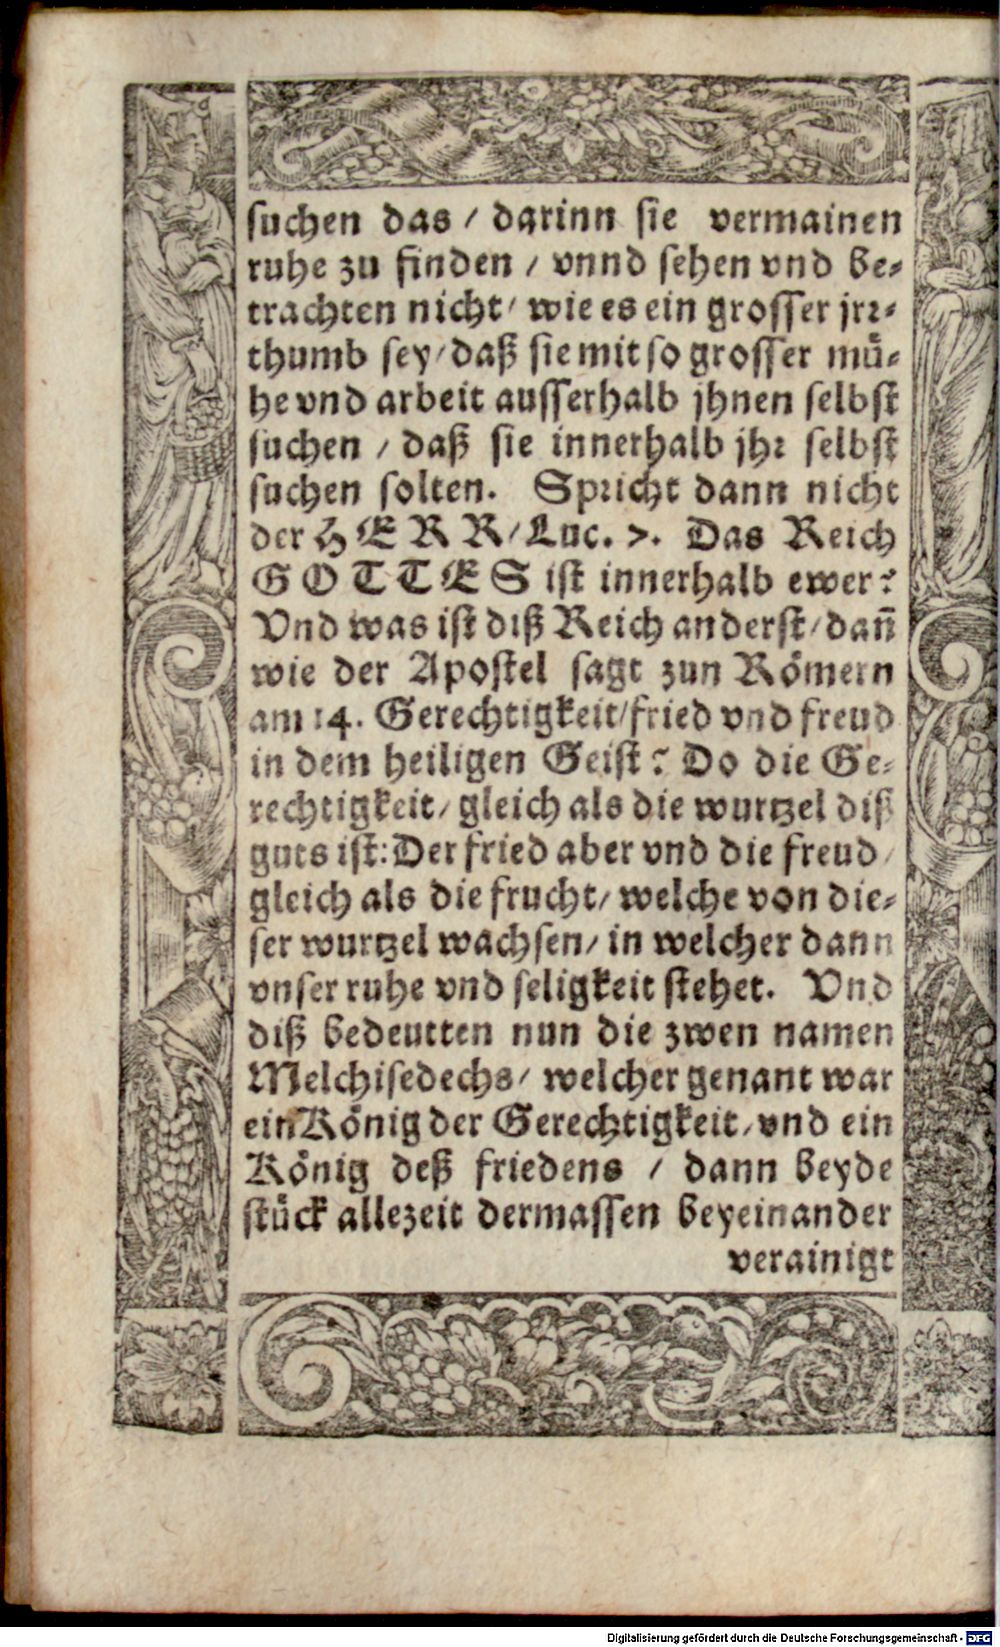 suchen das / darinn sie vermainen
ruhe zu finden / vnnd sehen vnd be-
trachten nicht / wie es ein grosser jrr-
thumb sey / daß sie mit so grosser mü-
he vnd arbeit ausserhalb jhnen selbst
suchen / daß sie innerhalb jhr selbst
suchen solten. Spricht dann nicht
der HERR / Luc. 7. Das Reich
GOTTES ist innerhalb ewer?
Vnd was ist diß Reich anderst / dañ
wie der Apostel sagt zun Römern
am 14. Gerechtigkeit / fried vnd freud
in dem heiligen Geist? Do die Ge-
rechtigkeit / gleich als die wurtzel diß
guts ist: Der fried aber vnd die freud /
gleich als die frucht / welche von die-
ser wurtzel wachsen / in welcher dann
vnser ruhe vnd seligkeit stehet. Vnd
diß bedeutten nun die zwen namen
Melchisedechs / welcher genant war
ein König der Gerechtigkeit / vnd ein
König deß friedens / dann beyde
stück allezeit dermassen beyeinander
verainigt
Digitalisierung gefördert durch die Deutsche Forschungsgemeinschaft - DFG